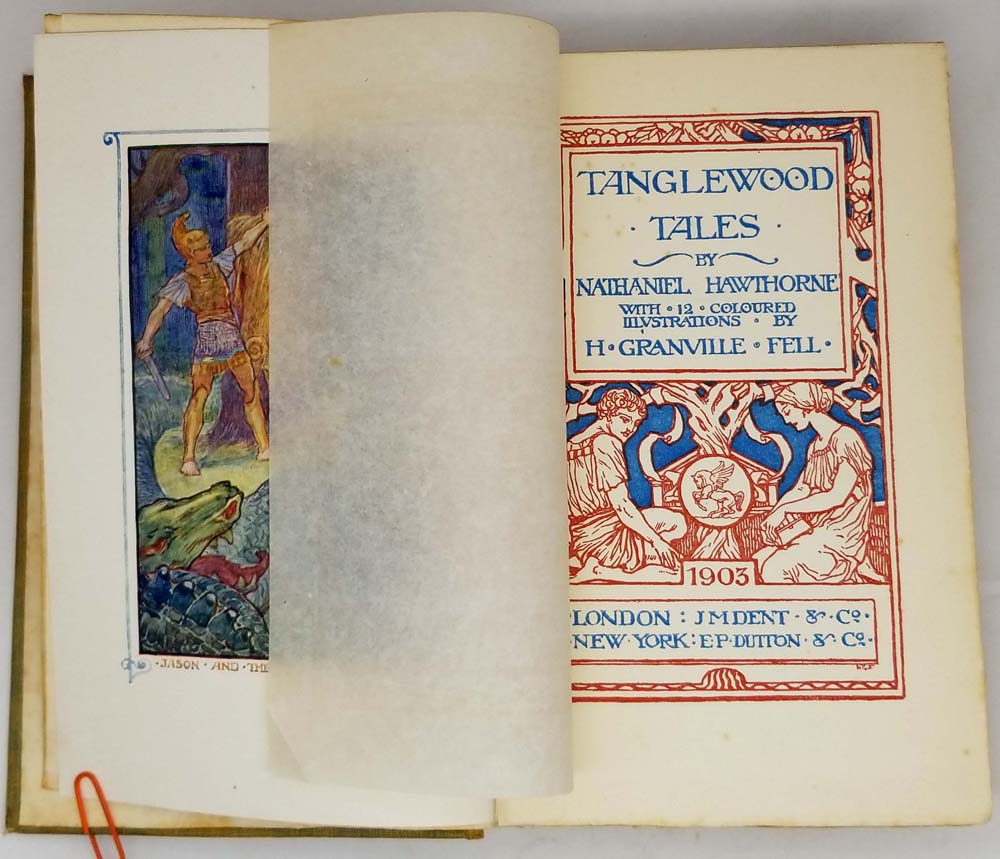 ·JASON·AND·THE
TANGLEWOOD
·TALES·
BY
NATHANIEL HAWTHORNE
WITH·12·COLOURED
ILLVSTRATIONS·BY
H·GRANVILLE·FELL·
1903
LONDON : J M DENT·&·Co.·
·NEW·YORK : E·P·DUTTON·&·Co.·